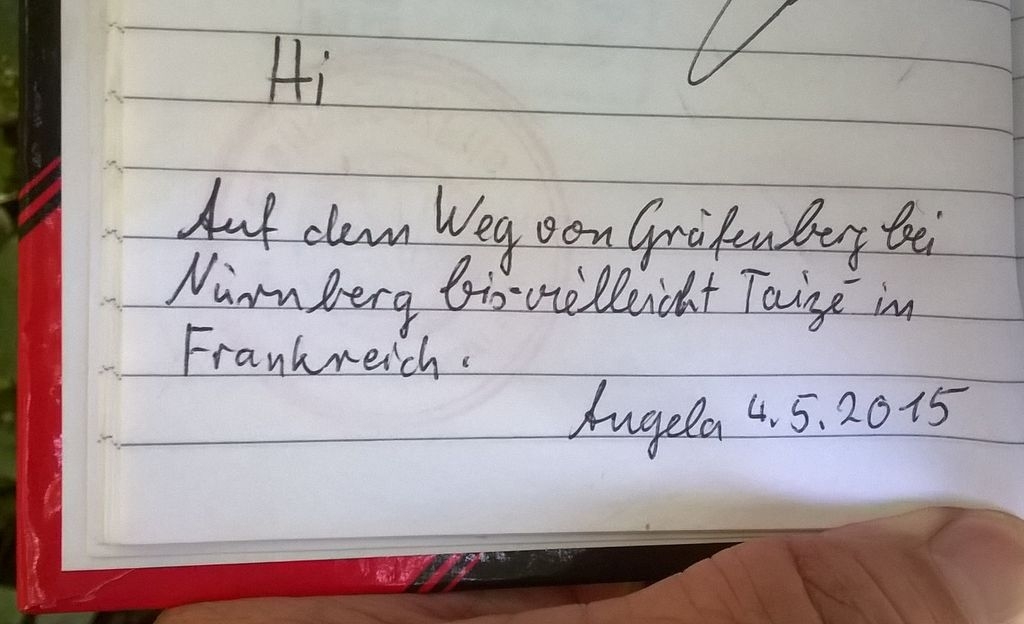 Hi
Auf dem Weg von Gräfenberg bei
Nürnberg bis vielleicht Taizé in
Frankreich.
Angela 4.5.2015